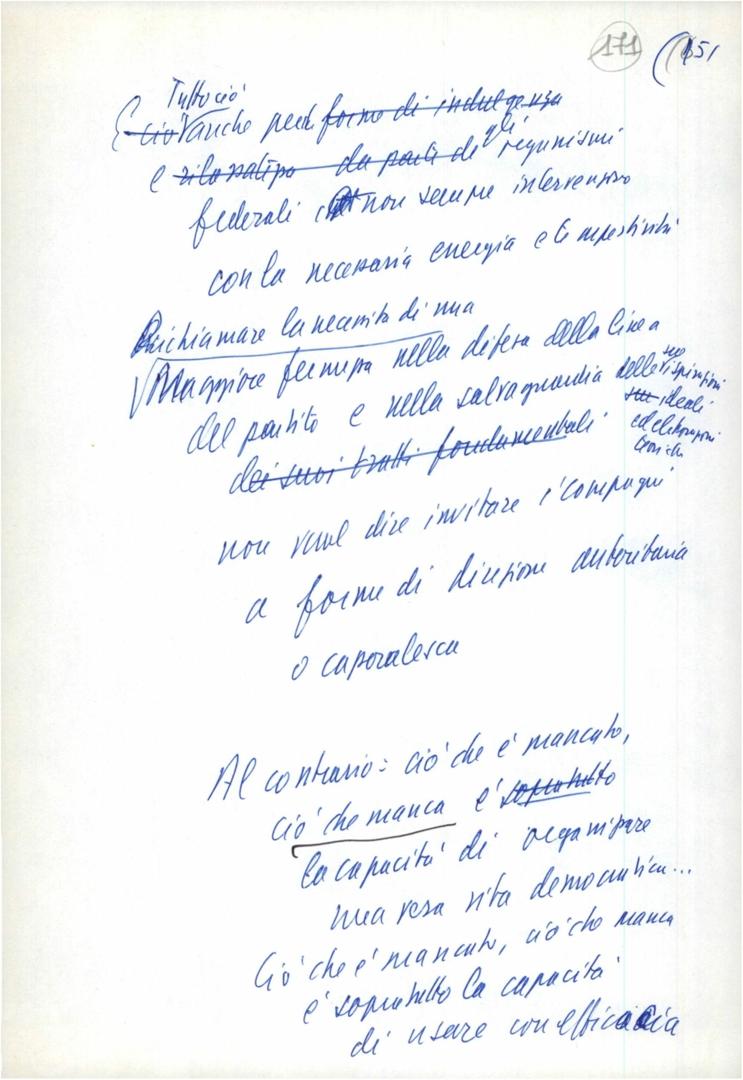 171 (151
Tutto ciò
E ciò anche perché forme di indulgenza
e rilassatezza da parte di gli organismi
federali non sempre intervengono
con la necessaria energia e tempestività
Richiamare la necessità di una
Maggiore fermezza nella difesa della linea
del partito e nella salvaguardia delle sue ispirazioni
sue ideali
ed elaborazioni
teoriche
dei suoi tratti fondamentali
non vuol dire invitare i compagni
a forme di direzione autoritaria
o caporalesca
Al contrario: ciò che è mancato,
ciò che manca è soprattutto
la capacità di organizzare
una vera vita democratica...
Ciò che è mancato, ciò che manca
è soprattutto la capacità
di usare con efficacia